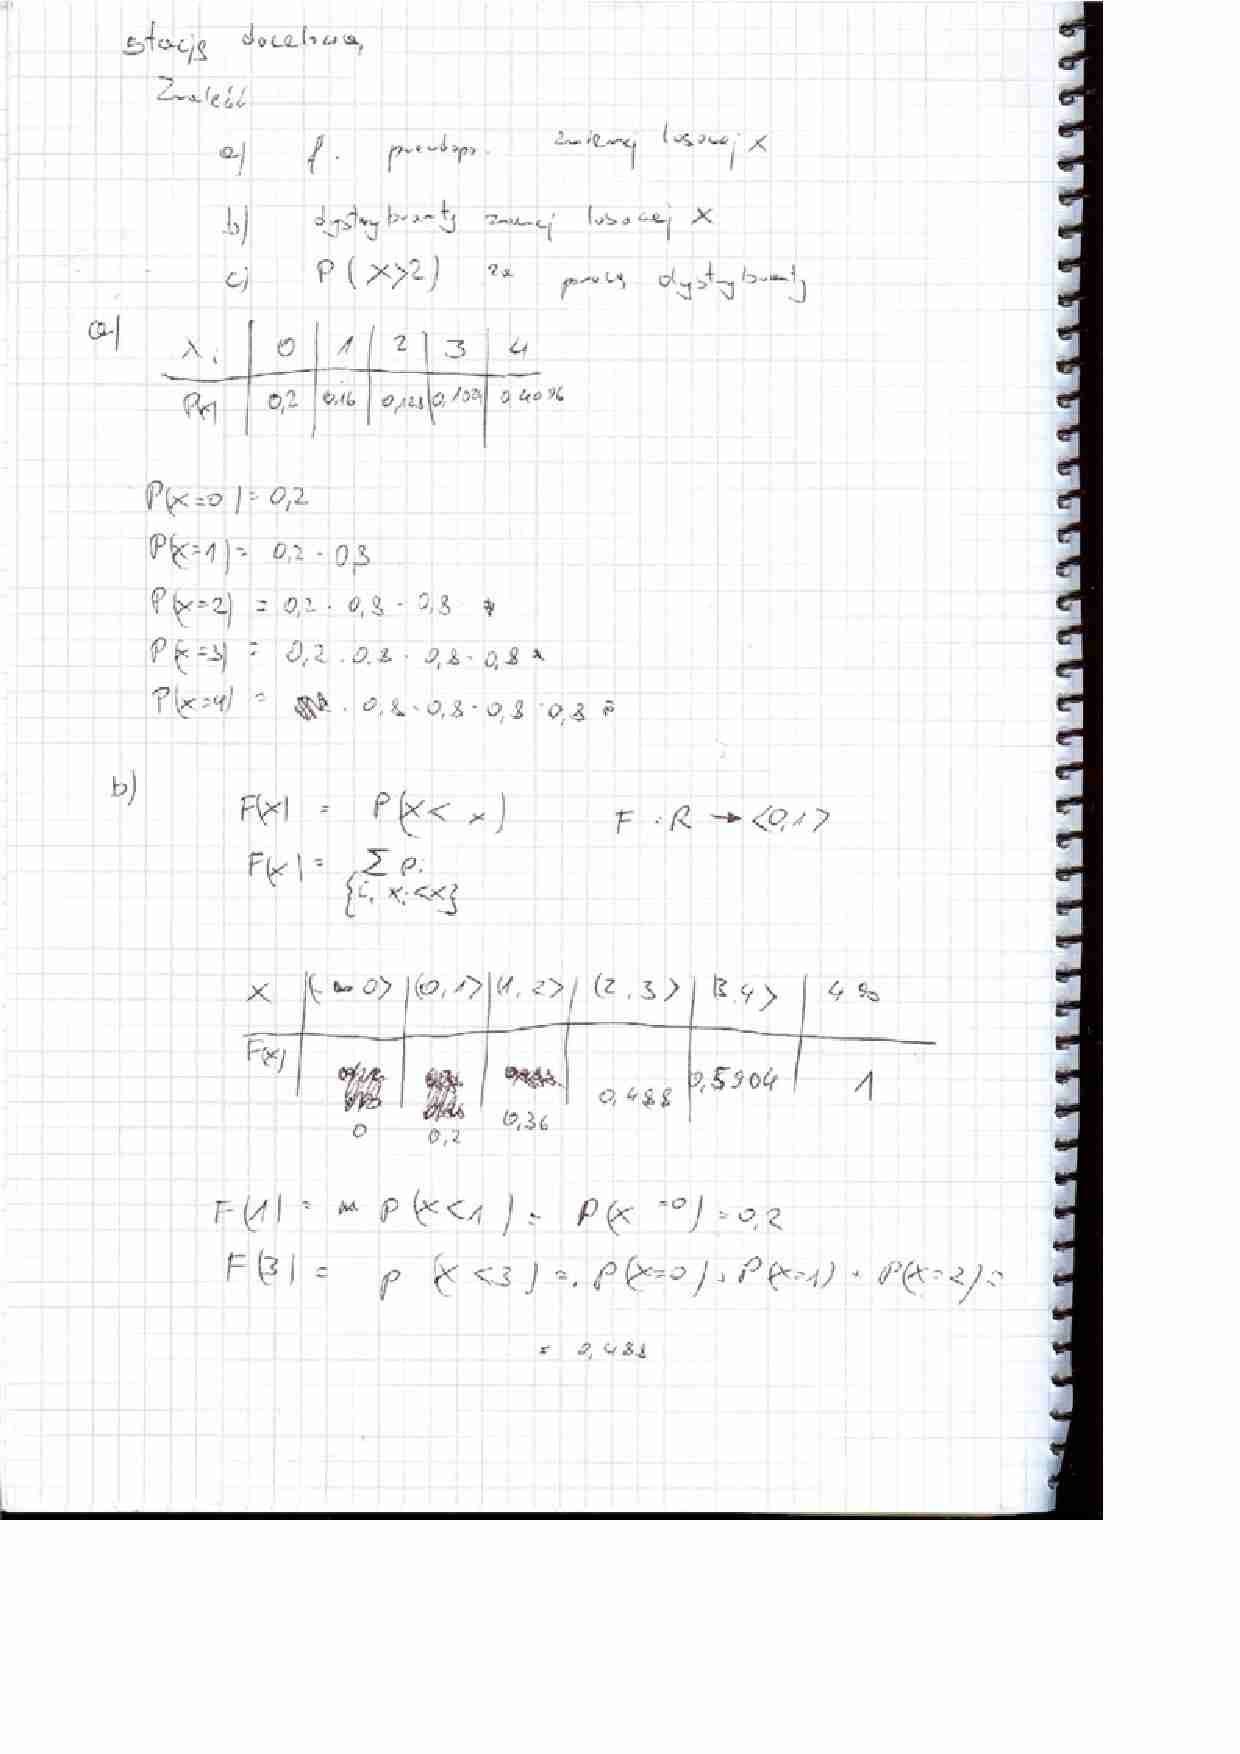 stację docelową
Znaleść
a) f. prawdop. zmiennej losowej X
b) dystrybuanty zmiennej losowej X
c) P(X>2) za pomocą dystrybuanty
a)
xi | 0 | 1 | 2 | 3 | 4
0,2 | 0,16 | 0,128 | 0,1024 | 0,4096
P(x=0) = 0,2
P(x=1) = 0,2 · 0,8
P(x=2) = 0,2 · 0,8 · 0,8 =
P(x=3) = 0,2 · 0,8 · 0,8 · 0,8 =
P(x=4) = · 0,8 · 0,8 · 0,8 · 0,8 =
b)
F(x) = P(X < x) F : R → <0,1>
F(x) = Σ pi
{i, xi<x}
X | (-∞ 0> | (0,1> | (1,2> | (2,3> | (3,4> | 4 ∞
F(x) | 0 | 0,2 | 0,36 | 0,488 | 0,5904 | 1
F(1) = P(x<1) = P(x=0) = 0,2
F(3) = P(x<3) = P(x=0) + P(x=1) + P(x=2) =
= 0,488